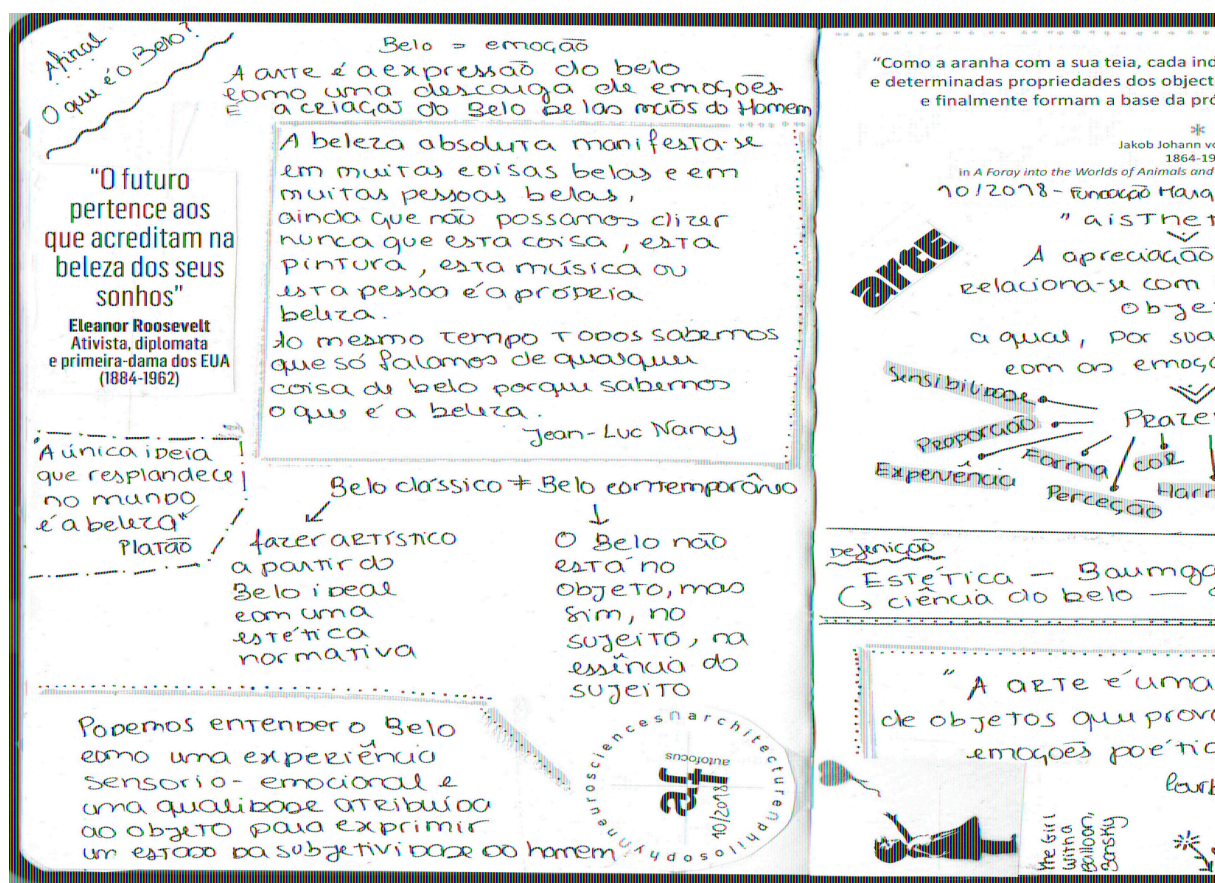 Afinal
O que é o Belo?
Belo = emoção
A arte é a expressão do belo
como uma descarga de emoções
É a criação do Belo pelas mãos do Homem
"O futuro
pertence aos
que acreditam na
beleza dos seus
sonhos"
Eleanor Roosevelt
Ativista, diplomata
e primeira-dama dos EUA
(1884-1962)
A beleza absoluta manifesta-se
em muitas coisas belas e em
muitas pessoas belas,
ainda que não possamos dizer
nunca que esta coisa, esta
pintura, esta música ou
esta pessoa é a própria
beleza.
Ao mesmo tempo todos sabemos
que só falamos de qualquer
coisa de belo porque sabemos
o que é a beleza.
Jean-Luc Nancy
"A única ideia
que resplandece
no mundo
é a beleza"
Platão
Belo clássico ≠ Belo contemporâneo
fazer artístico
a partir do
Belo ideal
com uma
estética
normativa
O Belo não
está no
objeto, mas
sim, no
sujeito, na
essência do
sujeito
Podemos entender o Belo
como uma experiência
sensorio-emocional e
uma qualidade atribuída
ao objeto para exprimir
um estado da subjetividade do homem
neurosciencesnarchitecturenphilosophy
autofocus
af
10/2018
"Como a aranha com a sua teia, cada ind
e determinadas propriedades dos object
e finalmente formam a base da pró
Jakob Johann vo
1864-19
in A Foray into the Worlds of Animals and
10/2018 - Fundação Marq
"aisthet
arte
A apreciação
relaciona-se com
obje
a qual, por sua
com as emoçõ
Sensibilidade
Proporção
Experiência
Forma
Perceção
cor
Prazer
Harm
Defenição
Estética - Baumga
ciência do belo -
"A arte é uma
de objetos que provo
emoções poétic
The Girl
with a
Balloon,
Bansky